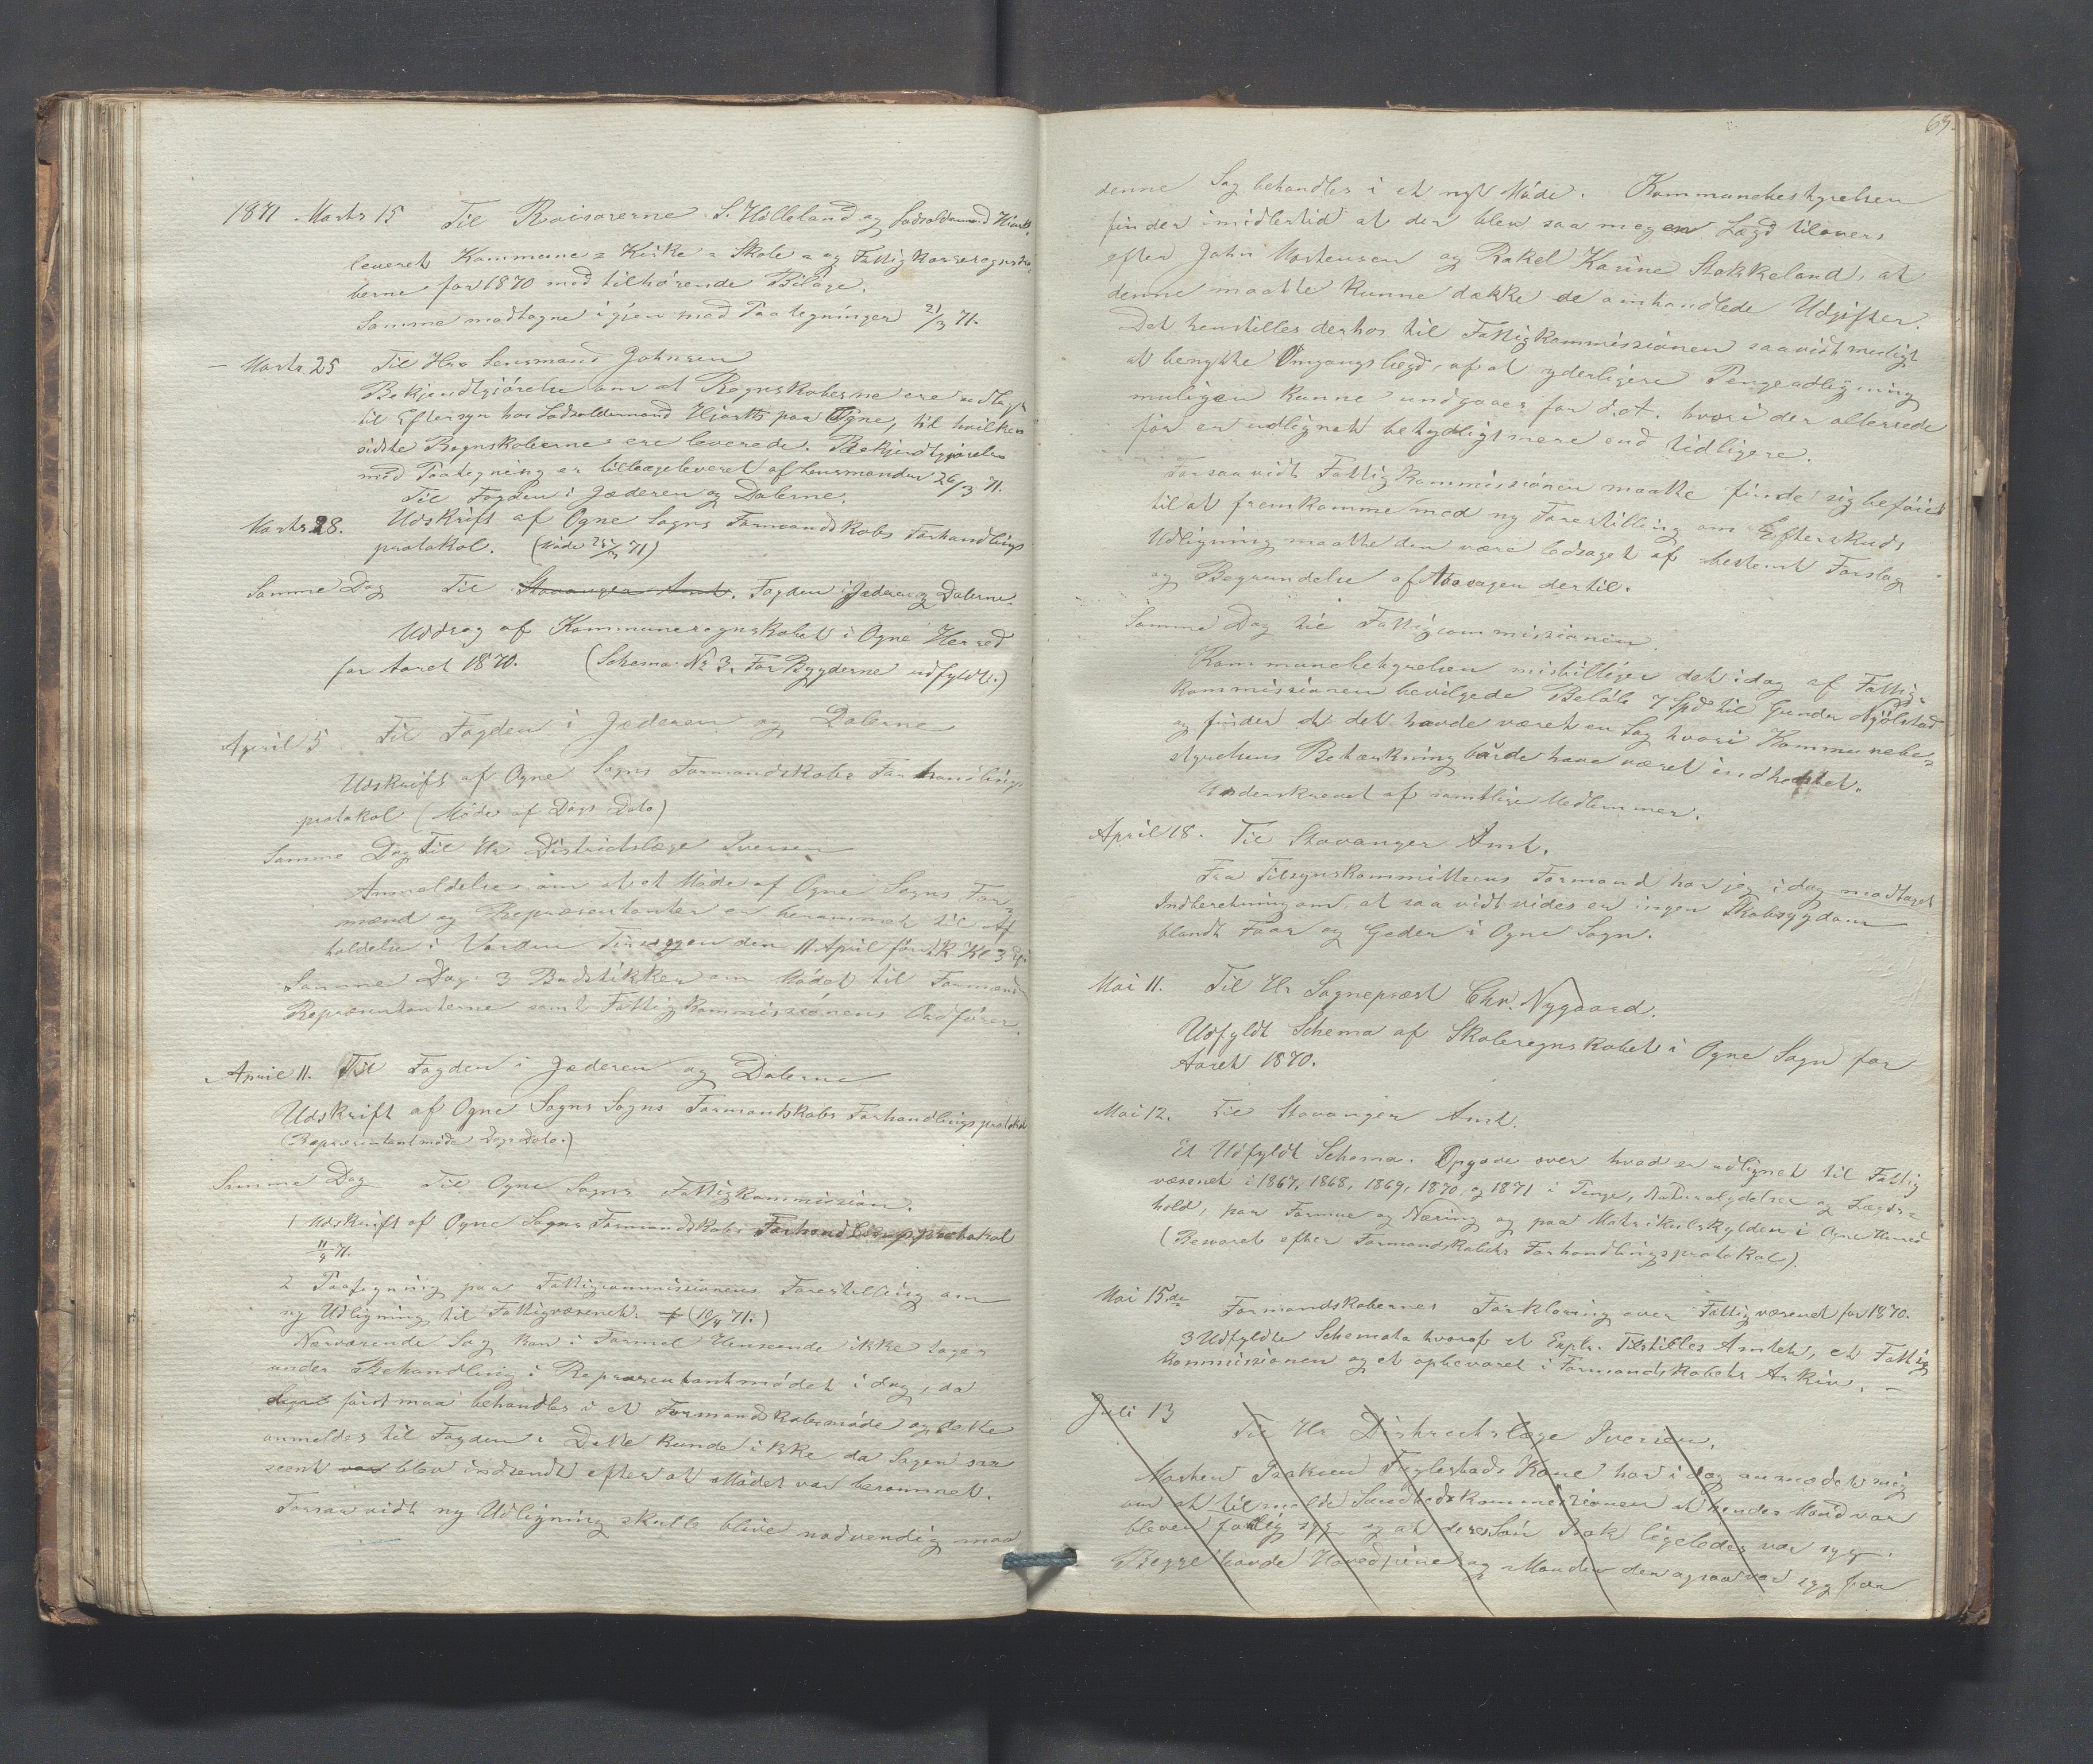 1871 Marts 15 Til Revisorerne S. Hølleland og Lodsoldermand Hiort,
leveret Kommune- Kirke- Skole- og Fattigkasseregnska-
berne for 1870 med tilhørende Bilage.
Samme modtagne igjen med Paategninger 21/3 71.
– Marts 25 Til Hr Lensmand Johnsen
Bekjendtgjørelse om at Regnskaberne ere udlagt
til Eftersyn hos Lodsoldermand Hjorth paa Ogne, til hvilken
sidste Regnskaberne ere leverede. Bekjendtgjørelsen
med Paategning er tilbageleveret af Lensmanden 26/3 71.
Til Fogden i Jæderen og Dalerne.
Marts 28. Udskrift af Ogne Sogns Formandskabs Forhandlings
protokol. (Møde 25/3 71)
Samme Dag Til Stavanger Amt. Fogden i Jæderen og Dalerne.
Uddrag af Kommuneregnskabet i Ogne Herred
for Aaret 1870. (Schema No 3. For Bygderne udfyldt.)
April 5 Til Fogden i Jæderen og Dalerne
Udskrift af Ogne Sogns Formandskabs Forhandlings
protokol (Møde af Dags Dato)
Samme Dag Til Hr Distriktslæge Iversen
Anmeldelse om at et Møde af Ogne Sogns For-
mænd og Repræsentanter er berammet til Af
holdelse i Varden Tirsdagen den 11 April førstk Kl 3
Samme Dag 3 Budstikker om Mødet til Formænd
Repræsentanterne samt Fattigkommissionens Ordfører.
April 11. Til Fogden i Jæderen og Dalerne
Udskrift af Ogne Sogns Sogns Formandskabs Forhandlingsprotokol
(Repræsentantmøde Dags Dato.)
Samme Dag Til Ogne Sogns Fattigkommission.
1 Udskrift af Ogne Sogns Formandskabs Forhandlingsprotokol
11/4 71.
2 Paategning paa Fattigcommissionens Forestilling om
ny Udligning til Fattigvæsenet. (10/4 71.)
Nærværende Sag kan i Formel Henseende ikke tages
under Behandling i Repræsentantmødet i dag, da
først maa behandles i et Formandskabsmøde og dette
anmeldes til Fogden. Dette kunde ikke da Sagen saa
seent var blev indsendt efter at Mødet var berammet.
Forsaavidt ny Udligning skulle blive nødvendig maa
69.
denne Sag behandles i et nyt Møde. Kommunebestyrelsen
finder imidlertid at der blev saa megen Lægd tilovers
efter John Mortensen og Rakel Karine Stokkeland, at
denne maatte kunne dække de omhandlede Udgifter.
Det henstilles derhos til Fattigkommissionen saavidt muligt
at benytte Omgangslægd, af at yderligere Pengeudligning
muligen kunne undgaaes for i.A. hvori der allerede
før er udlignet betydligt mere end tidligere.
Forsaavidt Fattigkommissionen maatte finde sig beføiet
til at fremkomme med ny Forestilling om Efterskuds
Udligning maatte den være ledsaget af bestemt Forslag
og Begrundelse af Aarsagen dertil.
Samme Dag til Fattigcommissionen.
Kommunebestyrelsen misbilliger det idag af Fattig-
kommissionen bevilgede Beløb 7 Spd til Gunder Njølstad
og finder at det havde været en Sag hvori Kommunebe-
styrelsens Betænkning burde have været indhentet.
Underskrevet af samtlige Medlemmer.
April 18. Til Stavanger Amt.
Fra Tilsynskommitteens Formand har jeg i dag modtaget
Indberetning om at saa vidt vides er ingen Skabsygdom
blandt Faar og Geder i Ogne Sogn.
Mai 11. Til Hr Sognepræst Chr. Nygaard.
Udfyldt Schema af Skoleregnskabet i Ogne Sogn for
Aaret 1870.
Mai 12. Til Stavanger Amt.
Et Udfyldt Schema. Opgave over hvad er udlignet til Fattig
væsenet i 1867, 1868, 1869, 1870, og 1871 i Penge, Naturalydelser og Lægds-
hold, paa Formue og Næring og paa Matrikulskylden i Ogne Herred
(Bevaret efter Formandskabets Forhandlingsprotokol).
Mai 15de Formandskabernes Forklaring over Fattigvæsenet for 1870.
3 Udfyldte Schemata hvoraf et Expl. Tilstilles Amtet, et Fattig
kommissionen og et opbevaret i Formandskabets Arkiv. –
Juli 13 Til Hr Distriktslæge Iversen,
Morten Isaksen Fuglestads Kone har i dag anmodet mig
om at tilmelde Sundhedskommissionen at hendes Mand var
bleven farlig syg og at deres Søn Isak ligeledes var syg.
Begge havde Hovedpine og Manden der ogsaa var syg for